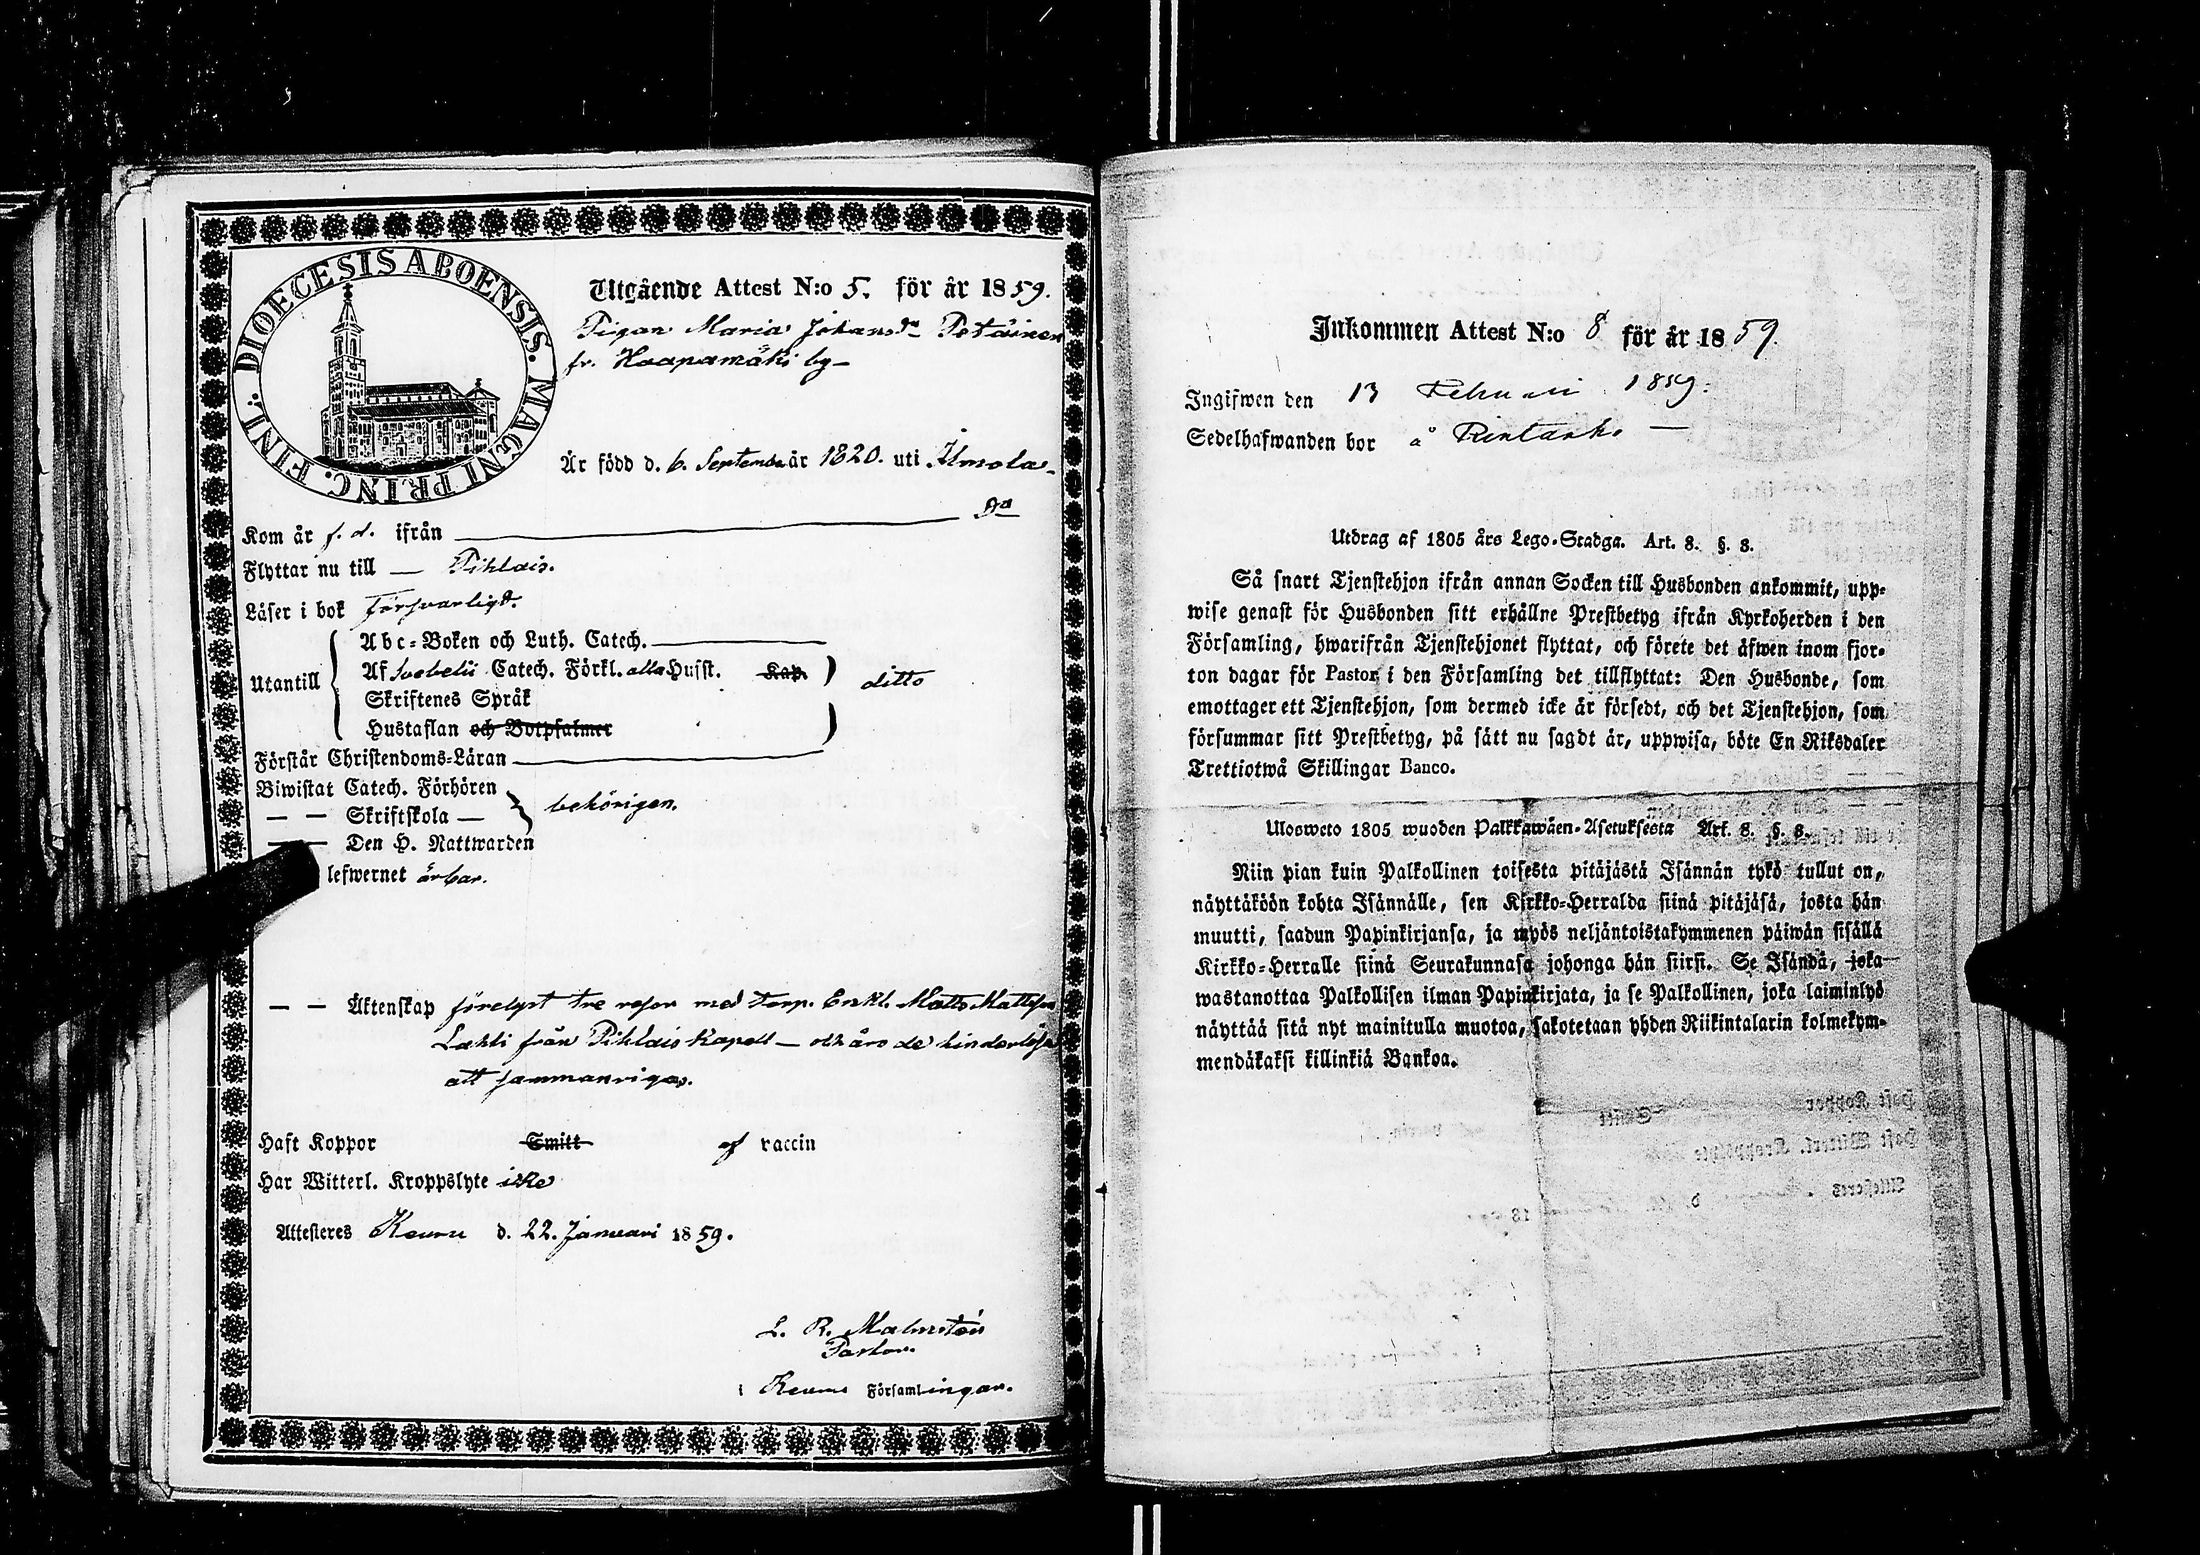 DIOECESIS ABOENSIS. MAGNI PRINC. FINL.
Utgående Attest N:o 5. för år 1859.
Pigan Maria Johansdr Petäinen
fr. Haapamäki by
Är född d. 6. September år 1820. uti Ilmola.
Kom år f. d. ifrån
Flyttar nu till — Pihlais.
Läser i bok försvarligt.
Utantill
Abc-Boken och Luth. Catech.
Af Svebelii Catech. Förkl. alla Husst. Kap.
ditto
Skriftenes Språk
Hustaflan och Botpsalmer
Förstår Christendoms-Läran
Biwistat Catech. Förhören
— — Skriftskola — behörigen.
— — Den H. Nattwarden
lefwernet ärbar.
— — Äktenskap förelyst tre resor med Enkl. Matts Mattsson
Lahti från Pihlais Kapell — och äro de hinderlösa
att sammanvigas.
Haft Koppor Smitt af vaccin
Har Witterl. Kroppslyte icke
Attesteres Keuru d. 22. Januari 1859.
L. R. Malmstén
Pastor.
i Keuru Församlingar.
Inkommen Attest N:o 8 för år 1859.
Ingifwen den 13 Februari 1859.
Sedelhafwanden bor å —
Utdrag af 1805 års Lego-Stadga. Art. 8. §. 8.
Så snart Tjenstehjon ifrån annan Socken till Husbonden ankommit, upp-
wise genast för Husbonden sitt erhållne Prestbetyg ifrån Kyrkoherden i den
Församling, hwarifrån Tjenstehjonet flyttat, och förete det äfwen inom fjor-
ton dagar för Pastor i den Församling det tillflyttat: Den Husbonde, som
emottager ett Tjenstehjon, som dermed icke är försedt, och det Tjenstehjon, som
försummar sitt Prestbetyg, på sätt nu sagdt är, uppwisa, böte En Riksdaler
Trettiotwå Skillingar Banco.
Ulosweto 1805 wuoden Palkkawäen-Asetuksesta Art. 8. §. 8.
Niin pian kuin Palkollinen toisesta pitäjästä Isännän tykö tullut on,
näyttäköön kohta Isännälle, sen Kirkko-Herralda siinä pitäjäsä, josta hän
muutti, saadun Papinkirjansa, ja myös neljäntoistakymmenen päiwän sisällä
Kirkko-Herralle siinä Seurakunnasa johonga hän siirsi. Se Isändä, joka
wastanottaa Palkollisen ilman Papinkirjata, ja se Palkollinen, joka laiminlyö
näyttää sitä nyt mainitulla muotoa, sakotetaan yhden Riikintalarin kolmekym-
mendäkaksi killinkiä Bankoa.